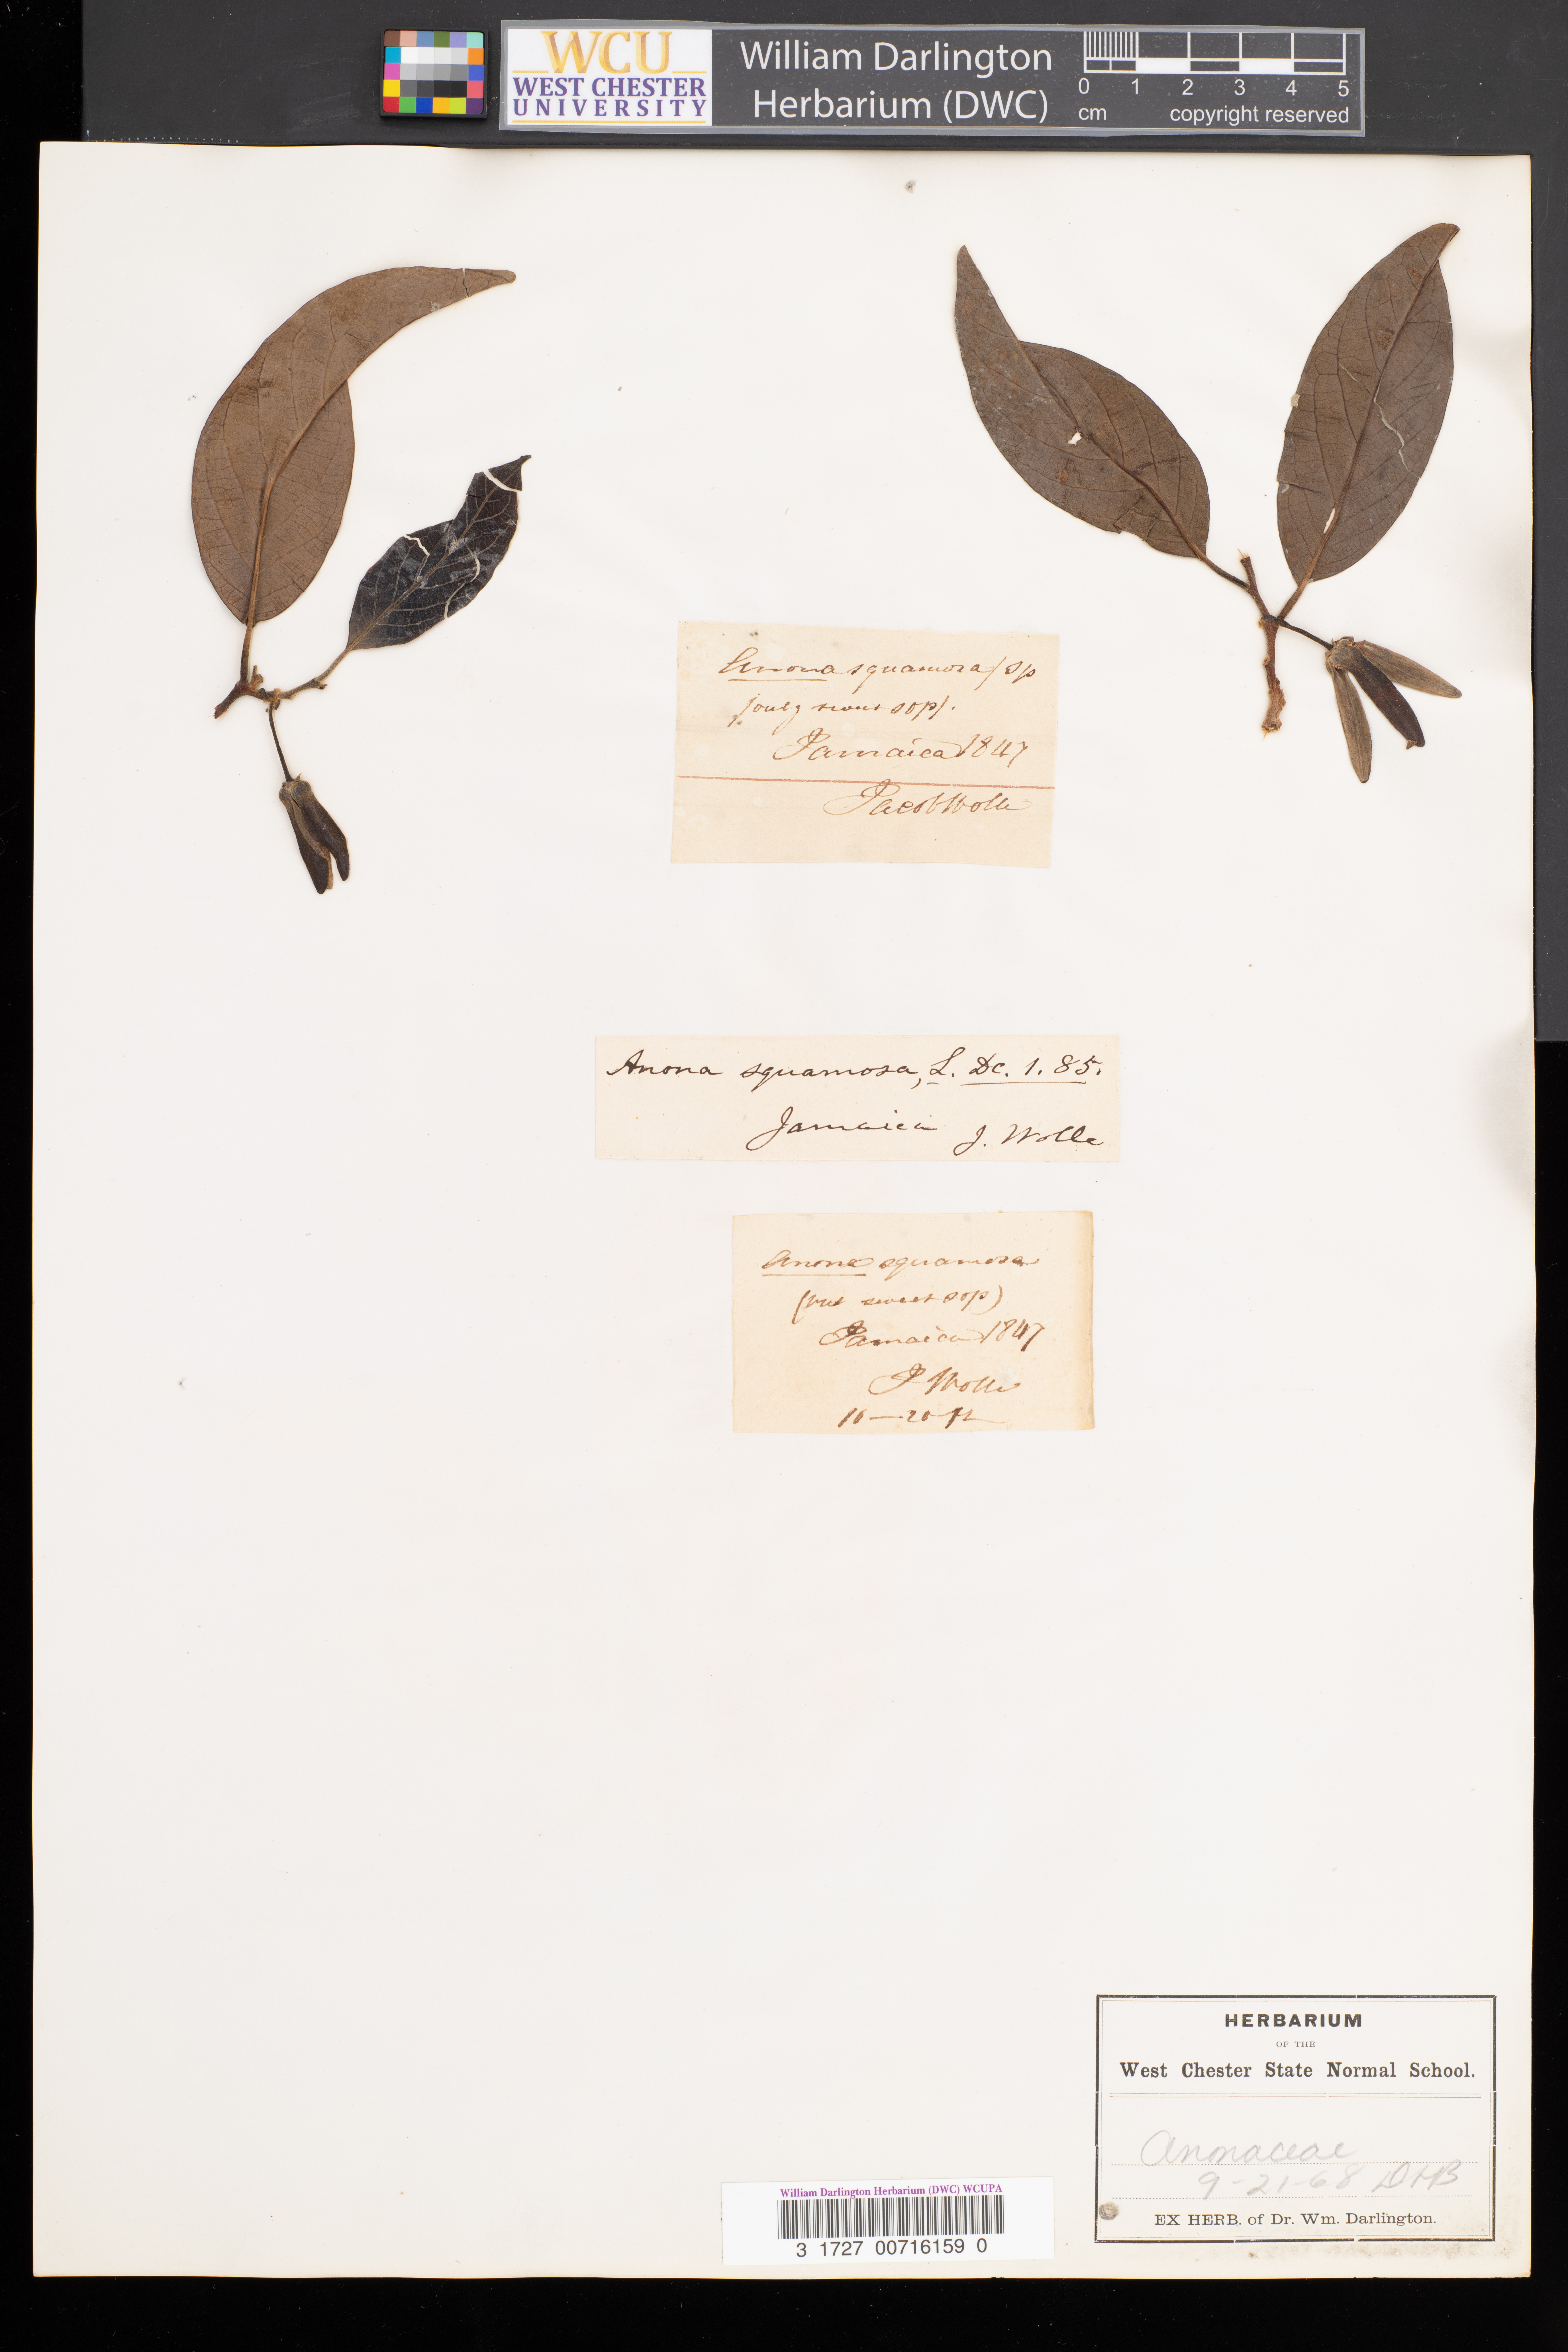 WCU
WEST CHESTER
UNIVERSITY
William Darlington
Herbarium (DWC)
0 1 2 3 4 5
cm copyright reserved
Anona squamosa
sweet sop).
Jamaica 1847
Jacob Wolle
Anona squamosa, L. Dc. 1. 85.
Jamaica J. Wolle
Anona squamosa
sweet sop)
Jamaica 1847
J Wolle
HERBARIUM
OF THE
West Chester State Normal School.
Anonaceae
9-21-68 DHB
EX HERB. of Dr. Wm. Darlington.
William Darlington Herbarium (DWC) WCUPA
3 1727 00716159 0